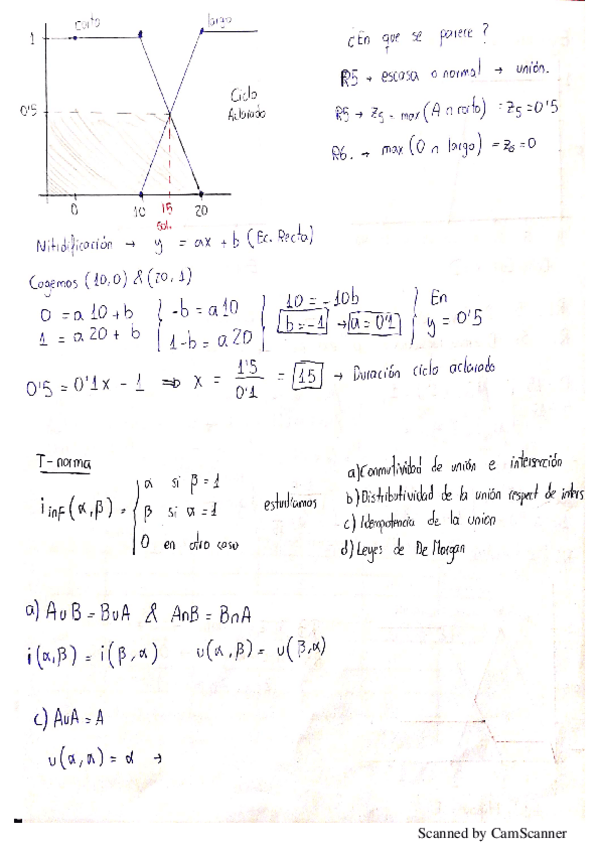 corto largo
¿En que se parece?
1
R5 → escasa o normal → unión.
Ciclo
Aclarado
0'5
R5 → Z5 = max(A ∩ corto) = Z5 = 0'5
R6. → max(O ∩ largo) = Z6 = 0
0 10 15 20
sol.
Nitidificación → y = ax + b (Ec. Recta)
Cogemos (10,0) & (20,1)
0 = a10 + b { -b = a10 { 10 = -10b } En
1 = a20 + b { 1-b = a20 { b = -1 → a = 0'1 } y = 0'5
0'5 = 0'1x - 1 ⇒ x = 1'5/0'1 = 15 → Duración ciclo aclarado
T-norma
i inf (α,β) = { α si β = 1
β si α = 1
0 en otro caso
estudiamos
a) Conmutividad de unión e intersección
b) Distributividad de la unión respect de inters
c) Idempotencia de la unión
d) Leyes de De Morgan
a) A∪B = B∪A & A∩B = B∩A
i(α,β) = i(β,α) u(α,β) = u(β,α)
c) A∪A = A
u(α,α) = α →
Scanned by CamScanner